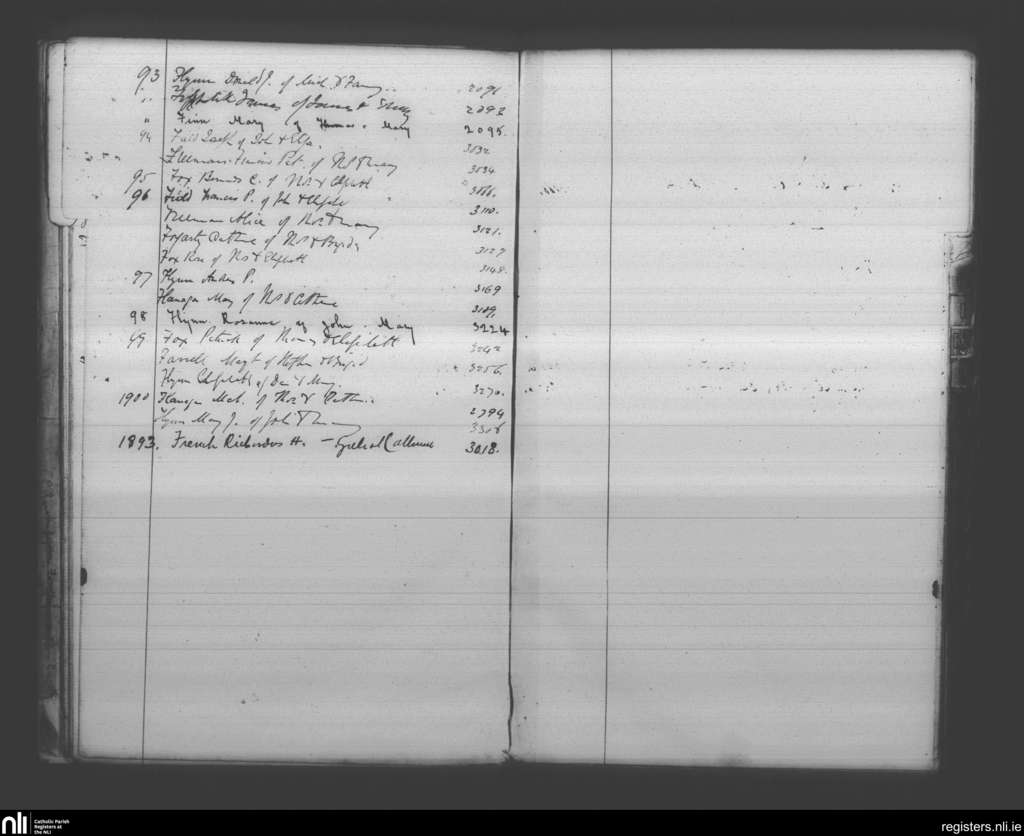 93 Flynn Donald J. of Mich & Fanny 2091
" James of James & 2093
" Finn Mary of Thomas & Mary 2095.
94 Field of Joh & Eliza. 3032
Freeman Francis Pat. of & Mary 3034
95 Fox Bernard C. of Thos & Elizabeth 3088.
96 Field Francis P. of Joh & Elizabeth 3110.
Freeman Alice of Thos & Mary 3121.
Fogarty Catherine of & Brigid 3127
Fox Rose of Thos & Elizabeth 3148.
97 Flynn Andrew P. 3169
Flanagan Mary of & Catherine 3189
98 Flynn Rosanna of John & Mary 3224
99 Fox Patrick of Thomas & Elizabeth 3242
Farrell Margt of Stephen & Brigid 3256.
Flynn Elizabeth of Dan & Mary. 3270.
1900 Flanagan of Thos & Catherine 2794
Flynn Mary J. of John & Mary 3308
1893. French Richardus H. — Catherine 3018.
nli Catholic Parish
Registers at
the NLI
registers.nli.ie